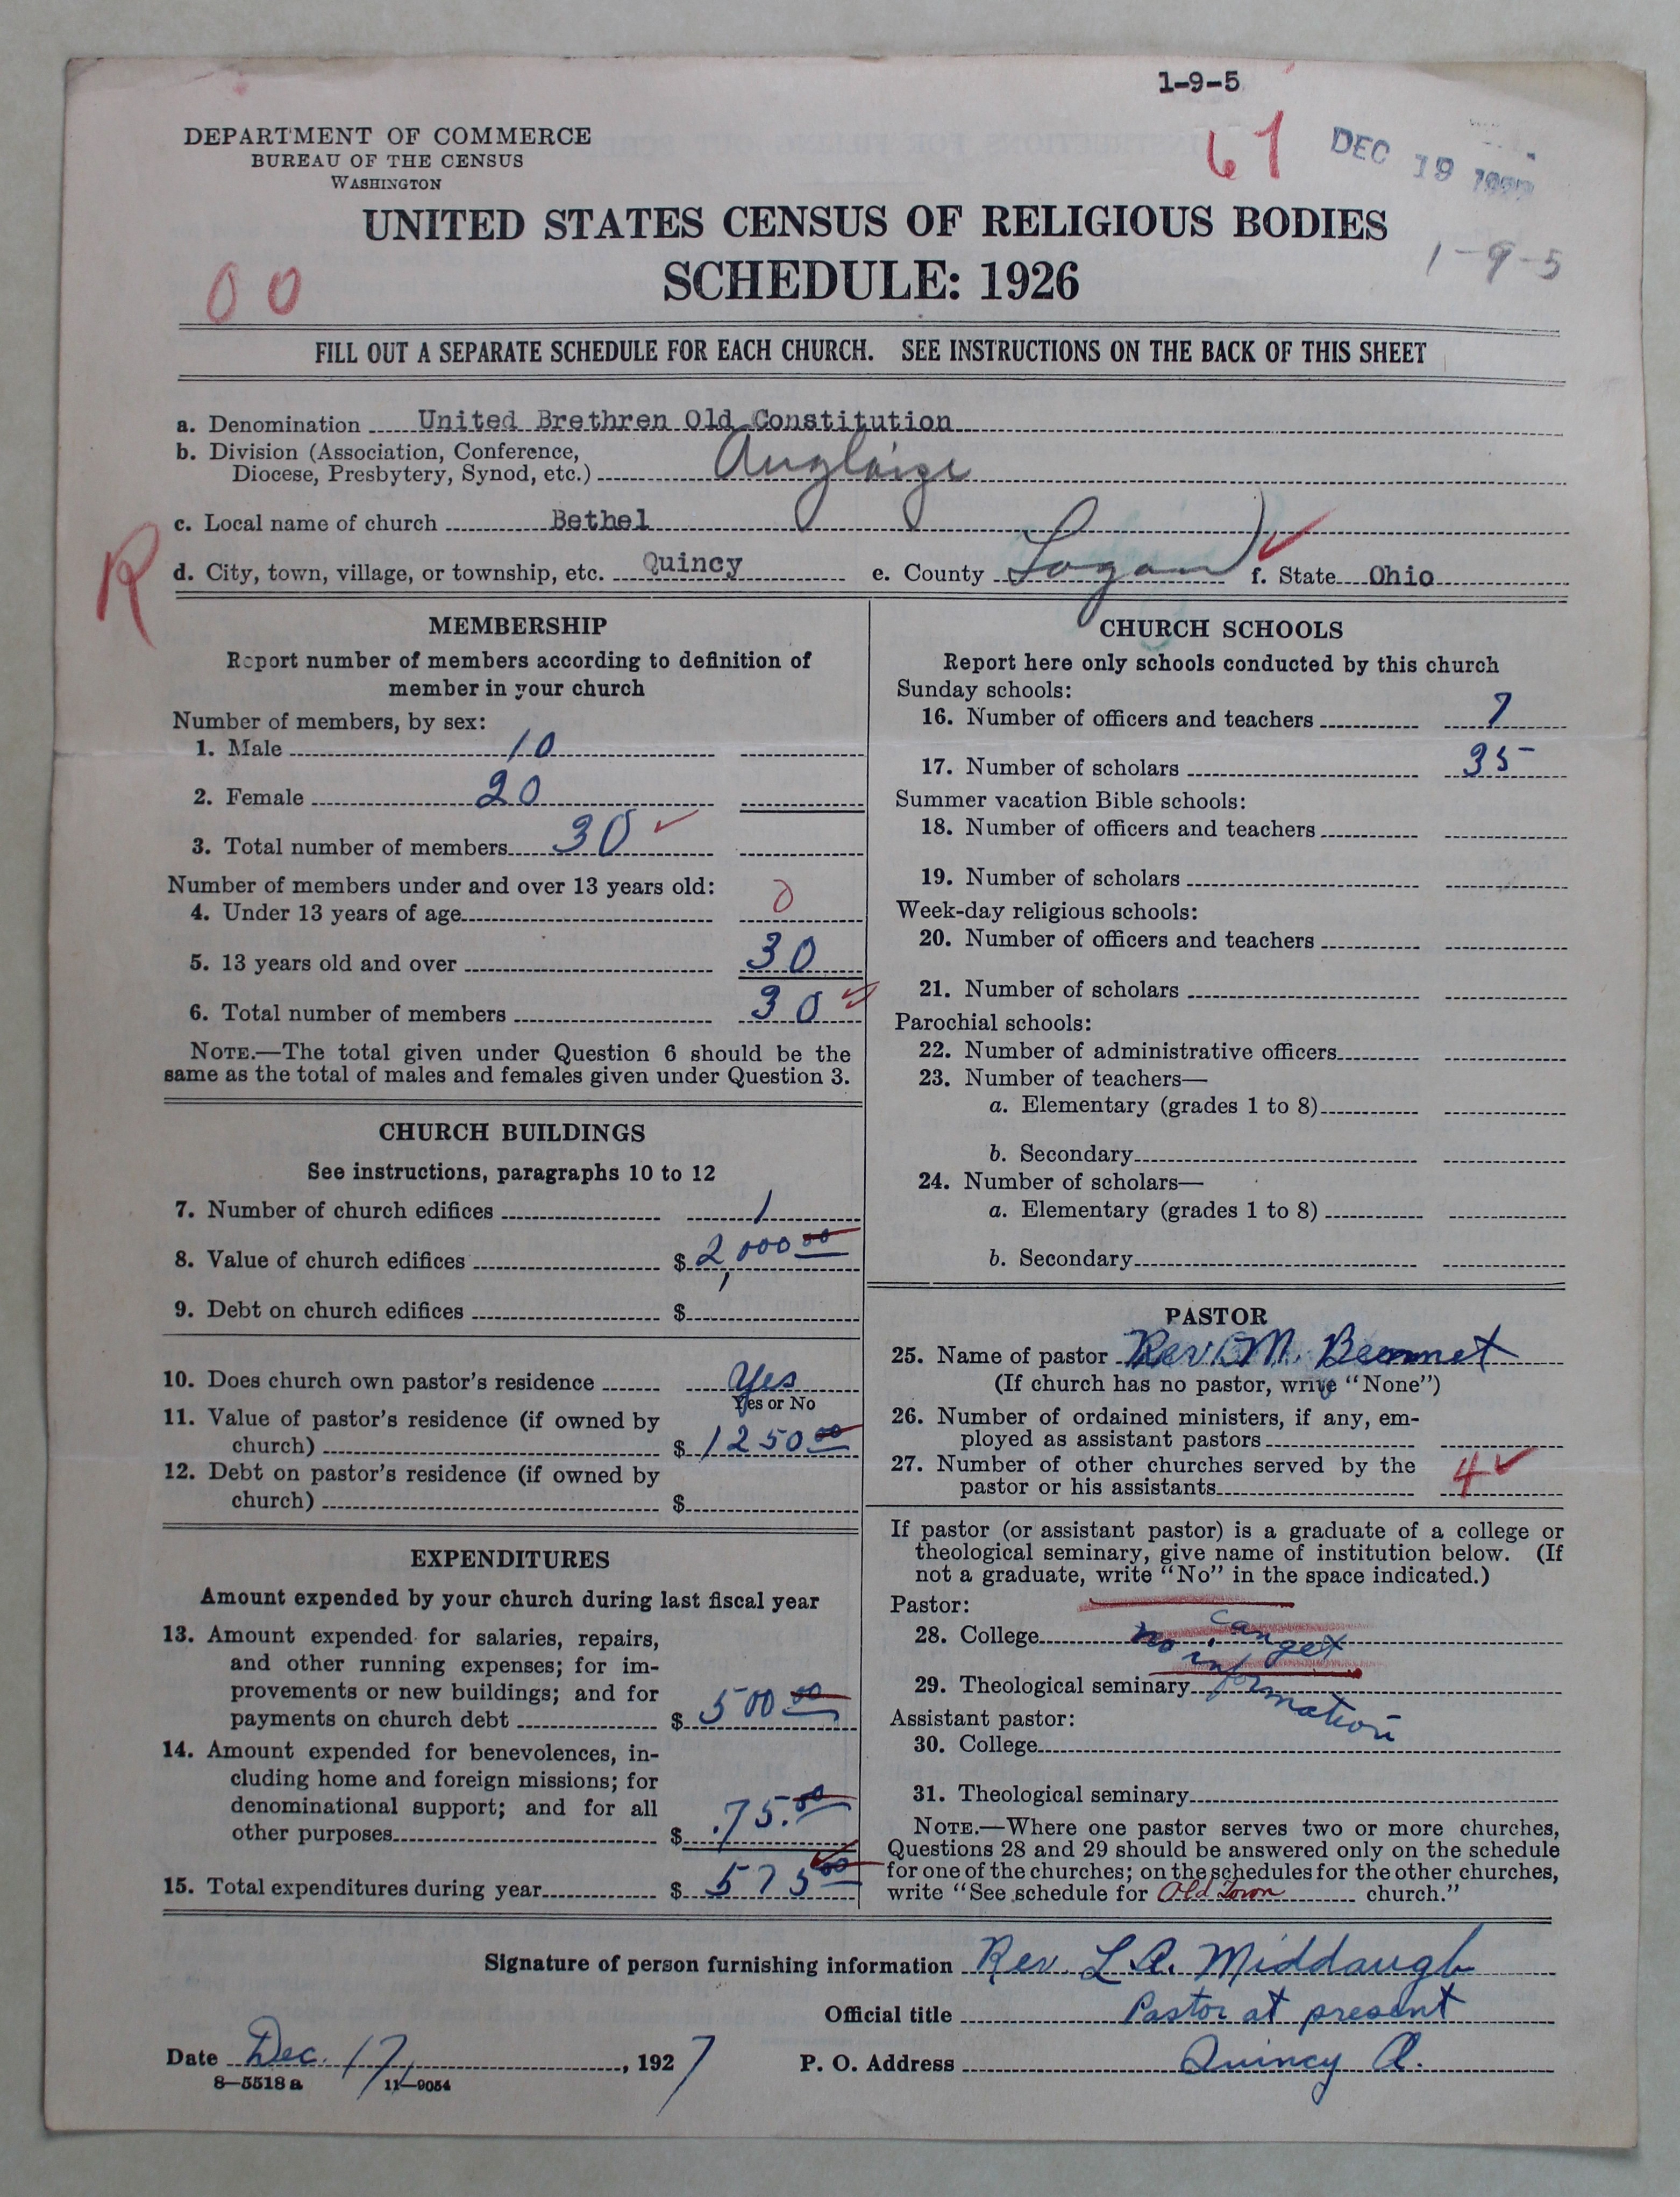 1-9-5
DEPARTMENT OF COMMERCE
BUREAU OF THE CENSUS
WASHINGTON
67
DEC 19 1927
UNITED STATES CENSUS OF RELIGIOUS BODIES
1-9-5
SCHEDULE: 1926
00
FILL OUT A SEPARATE SCHEDULE FOR EACH CHURCH. SEE INSTRUCTIONS ON THE BACK OF THIS SHEET
a. Denomination United Brethren Old Constitution
b. Division (Association, Conference,
Diocese, Presbytery, Synod, etc.) Auglaize
c. Local name of church Bethel
R
d. City, town, village, or township, etc. Quincy e. County Logan f. State Ohio
MEMBERSHIP
Report number of members according to definition of
member in your church
Number of members, by sex:
1. Male 10
2. Female 20
3. Total number of members 30
Number of members under and over 13 years old:
4. Under 13 years of age 0
5. 13 years old and over 30
6. Total number of members 30
NOTE.—The total given under Question 6 should be the
same as the total of males and females given under Question 3.
CHURCH BUILDINGS
See instructions, paragraphs 10 to 12
7. Number of church edifices 1
8. Value of church edifices $ 2,000 00
9. Debt on church edifices $
10. Does church own pastor's residence Yes
Yes or No
11. Value of pastor's residence (if owned by
church) $ 1250 00
12. Debt on pastor's residence (if owned by
church) $
EXPENDITURES
Amount expended by your church during last fiscal year
13. Amount expended for salaries, repairs,
and other running expenses; for im-
provements or new buildings; and for
payments on church debt $ 500 00
14. Amount expended for benevolences, in-
cluding home and foreign missions; for
denominational support; and for all
other purposes $ 75.00
15. Total expenditures during year $ 575 00
CHURCH SCHOOLS
Report here only schools conducted by this church
Sunday schools:
16. Number of officers and teachers 7
17. Number of scholars 35
Summer vacation Bible schools:
18. Number of officers and teachers
19. Number of scholars
Week-day religious schools:
20. Number of officers and teachers
21. Number of scholars
Parochial schools:
22. Number of administrative officers
23. Number of teachers—
a. Elementary (grades 1 to 8)
b. Secondary
24. Number of scholars—
a. Elementary (grades 1 to 8)
b. Secondary
PASTOR
25. Name of pastor Rev. M. Bennet
(If church has no pastor, write "None")
26. Number of ordained ministers, if any, em-
ployed as assistant pastors
27. Number of other churches served by the
pastor or his assistants 4
If pastor (or assistant pastor) is a graduate of a college or
theological seminary, give name of institution below. (If
not a graduate, write "No" in the space indicated.)
Pastor:
28. College no can get
29. Theological seminary information
Assistant pastor:
30. College
31. Theological seminary
NOTE.—Where one pastor serves two or more churches,
Questions 28 and 29 should be answered only on the schedule
for one of the churches; on the schedules for the other churches,
write "See schedule for Old Town church."
Signature of person furnishing information Rev. L. A. Middaugh
Official title Pastor at present
Date Dec. 17, 1927 P. O. Address Quincy O.
8—5518 a 11—9054